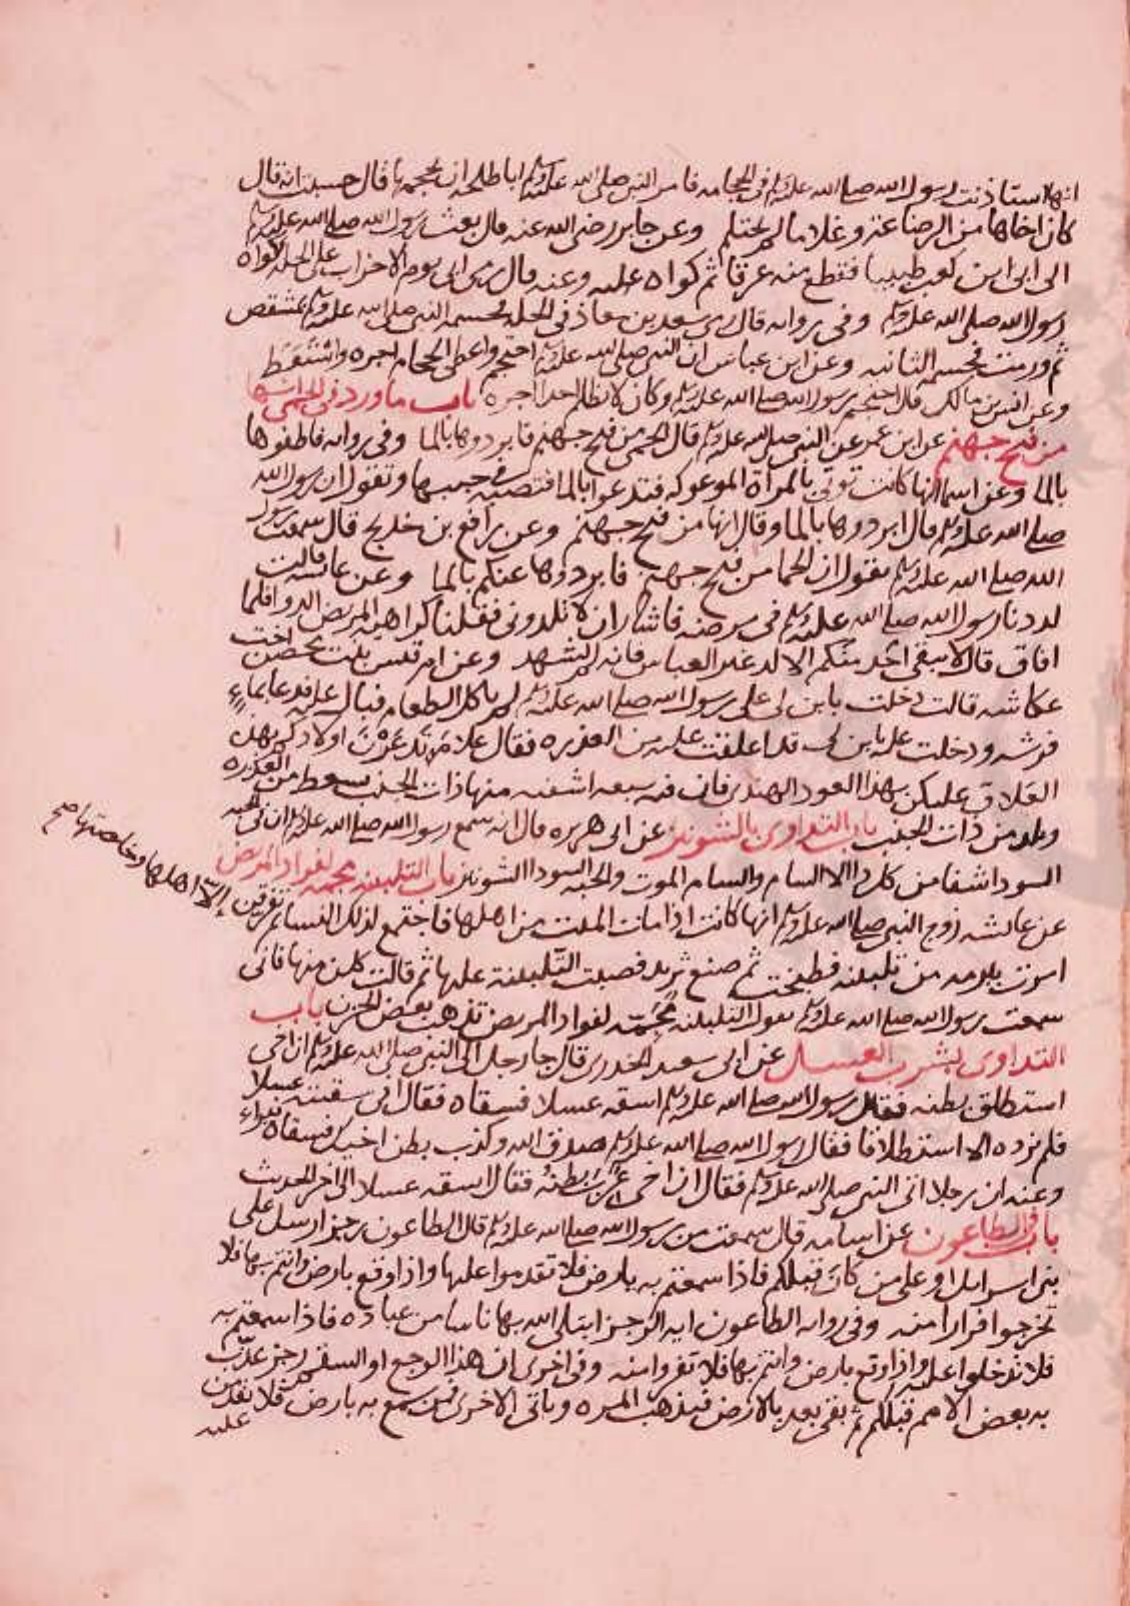 انها استاذنت رسول الله صلى الله عليه وسلم في الحجامه فامر النبي صلى الله عليه وسلم اباطلحه ان يحجمها قال حسبت انه قال
كان اخاها من الرضاعة وغلاما لم يحتلم وعن جابر رضي الله عنه قال بعث رسول الله صلى الله عليه وسلم
الى ابي ابن كعب طبيبا فقطع منه عرقا ثم كواه عليه وعنه قال رمي ابي يوم الاحزاب على اكحله فكواه
رسول الله صلى الله عليه وسلم وفي روايه قال رمي سعد بن معاذ في اكحله فحسمه النبي صلى الله عليه وسلم بمشقص
ثم ورمت فحسمه الثانيه وعن ابن عباس ان النبي صلى الله عليه وسلم احتجم واعطى الحجام اجره واستعط
وعن انس بن مالك قال احتجم رسول الله صلى الله عليه وسلم وكان لا يظلم احدا اجره باب ما ورد في الحمى انها
من فيح جهنم عن ابن عمر عن النبي صلى الله عليه وسلم قال الحمى من فيح جهنم فابردوها بالما وفي روايه فاطفوها
بالما وعن اسما انها كانت توتى بالمراة الموعوكه فتدعوا بالما فتصبه في جيبها وتقول ان رسول الله
صلى الله عليه وسلم قال ابردوها بالما وقال انها من فيح جهنم وعن رافع بن خديج قال سمعت رسول
الله صلى الله عليه وسلم يقول ان الحما من فيح جهنم فابردوها عنكم بالما وعن عايشه قالت
لددنا رسول الله صلى الله عليه وسلم في مرضه فاشار ان لا تلدوني فقلنا كراهية المريض الدوا فلما
افاق قال لا يبقى احد منكم الا لد غير العباس فانه لم يشهد وعن ام قيس بنت محصن اخت
عكاشه قالت دخلت بابن لي على رسول الله صلى الله عليه وسلم لم ياكل الطعام فبال عليه فدعا بماء
فرشه ودخلت عليه بابن لي قد اعلقت عليه من العذره فقال علامه تدغرن اولادكن بهذا
العلاق عليكن بهذا العود الهندي فان فيه سبعه اشفيه منها ذات الجنب يسعط من العذره
ويلد من ذات الجنب باب التداوي بالشونيز عن ابي هريره قال انه سمع رسول الله صلى الله عليه وسلم ان في الحبه
السودا شفا من كل دا الا السام والسام الموت والحبه السودا الشونيز باب التلبينه مجمه لفواد المريض
عن عائشه زوج النبي صلى الله عليه وسلم انها كانت اذا مات الميت من اهلها فاجتمع لذلك النسا ثم تفرقن إلا اهلها وخاصتها صح
امرت ببرمه من تلبينه فطبخت ثم صنع ثريد فصبت التلبينة عليها ثم قالت كلن منها فاني
سمعت رسول الله صلى الله عليه وسلم يقول التلبينه مجمة لفواد المريض تذهب بعض الحزن باب
التداوي بشرب العسل عن ابي سعيد الخدري قال جا رجل الى النبي صلى الله عليه وسلم ان اخي
استطلق بطنه فقال رسول الله صلى الله عليه وسلم اسقه عسلا فسقاه فقال اني سقيته عسلا
فلم يزده الا استطلاقا فقال رسول الله صلى الله عليه وسلم صدق الله وكذب بطن اخيك فسقاه فبراء
وعنه ان رجلا اتى النبي صلى الله عليه وسلم فقال ان اخي عرب بطنه فقال اسقه عسلا الى اخر الحديث
باب في الطاعون عن اسامه قال سمعت من رسول الله صلى الله عليه وسلم قال الطاعون رجز ارسل على
بني اسرايل او على من كان قبلكم فاذا سمعتم به بارض فلا تقدموا عليها واذا وقع بارض وانتم بها فلا
تخرجوا فرارا منه وفي روايه الطاعون ايه الرجز ابتلى الله بها ناسا من عباده فاذا سمعتم به
فلا تدخلوا عليه واذا وقع بارض وانتم بها فلا تفروا منه وفي اخرى ان هذا الوجع او السقم رجز عذب
به بعض الامم قبلكم ثم بقي بعد بالارض فيذهب المره وياتي الاخرى فمن سمع به بارض فلا يقدمن
عليه